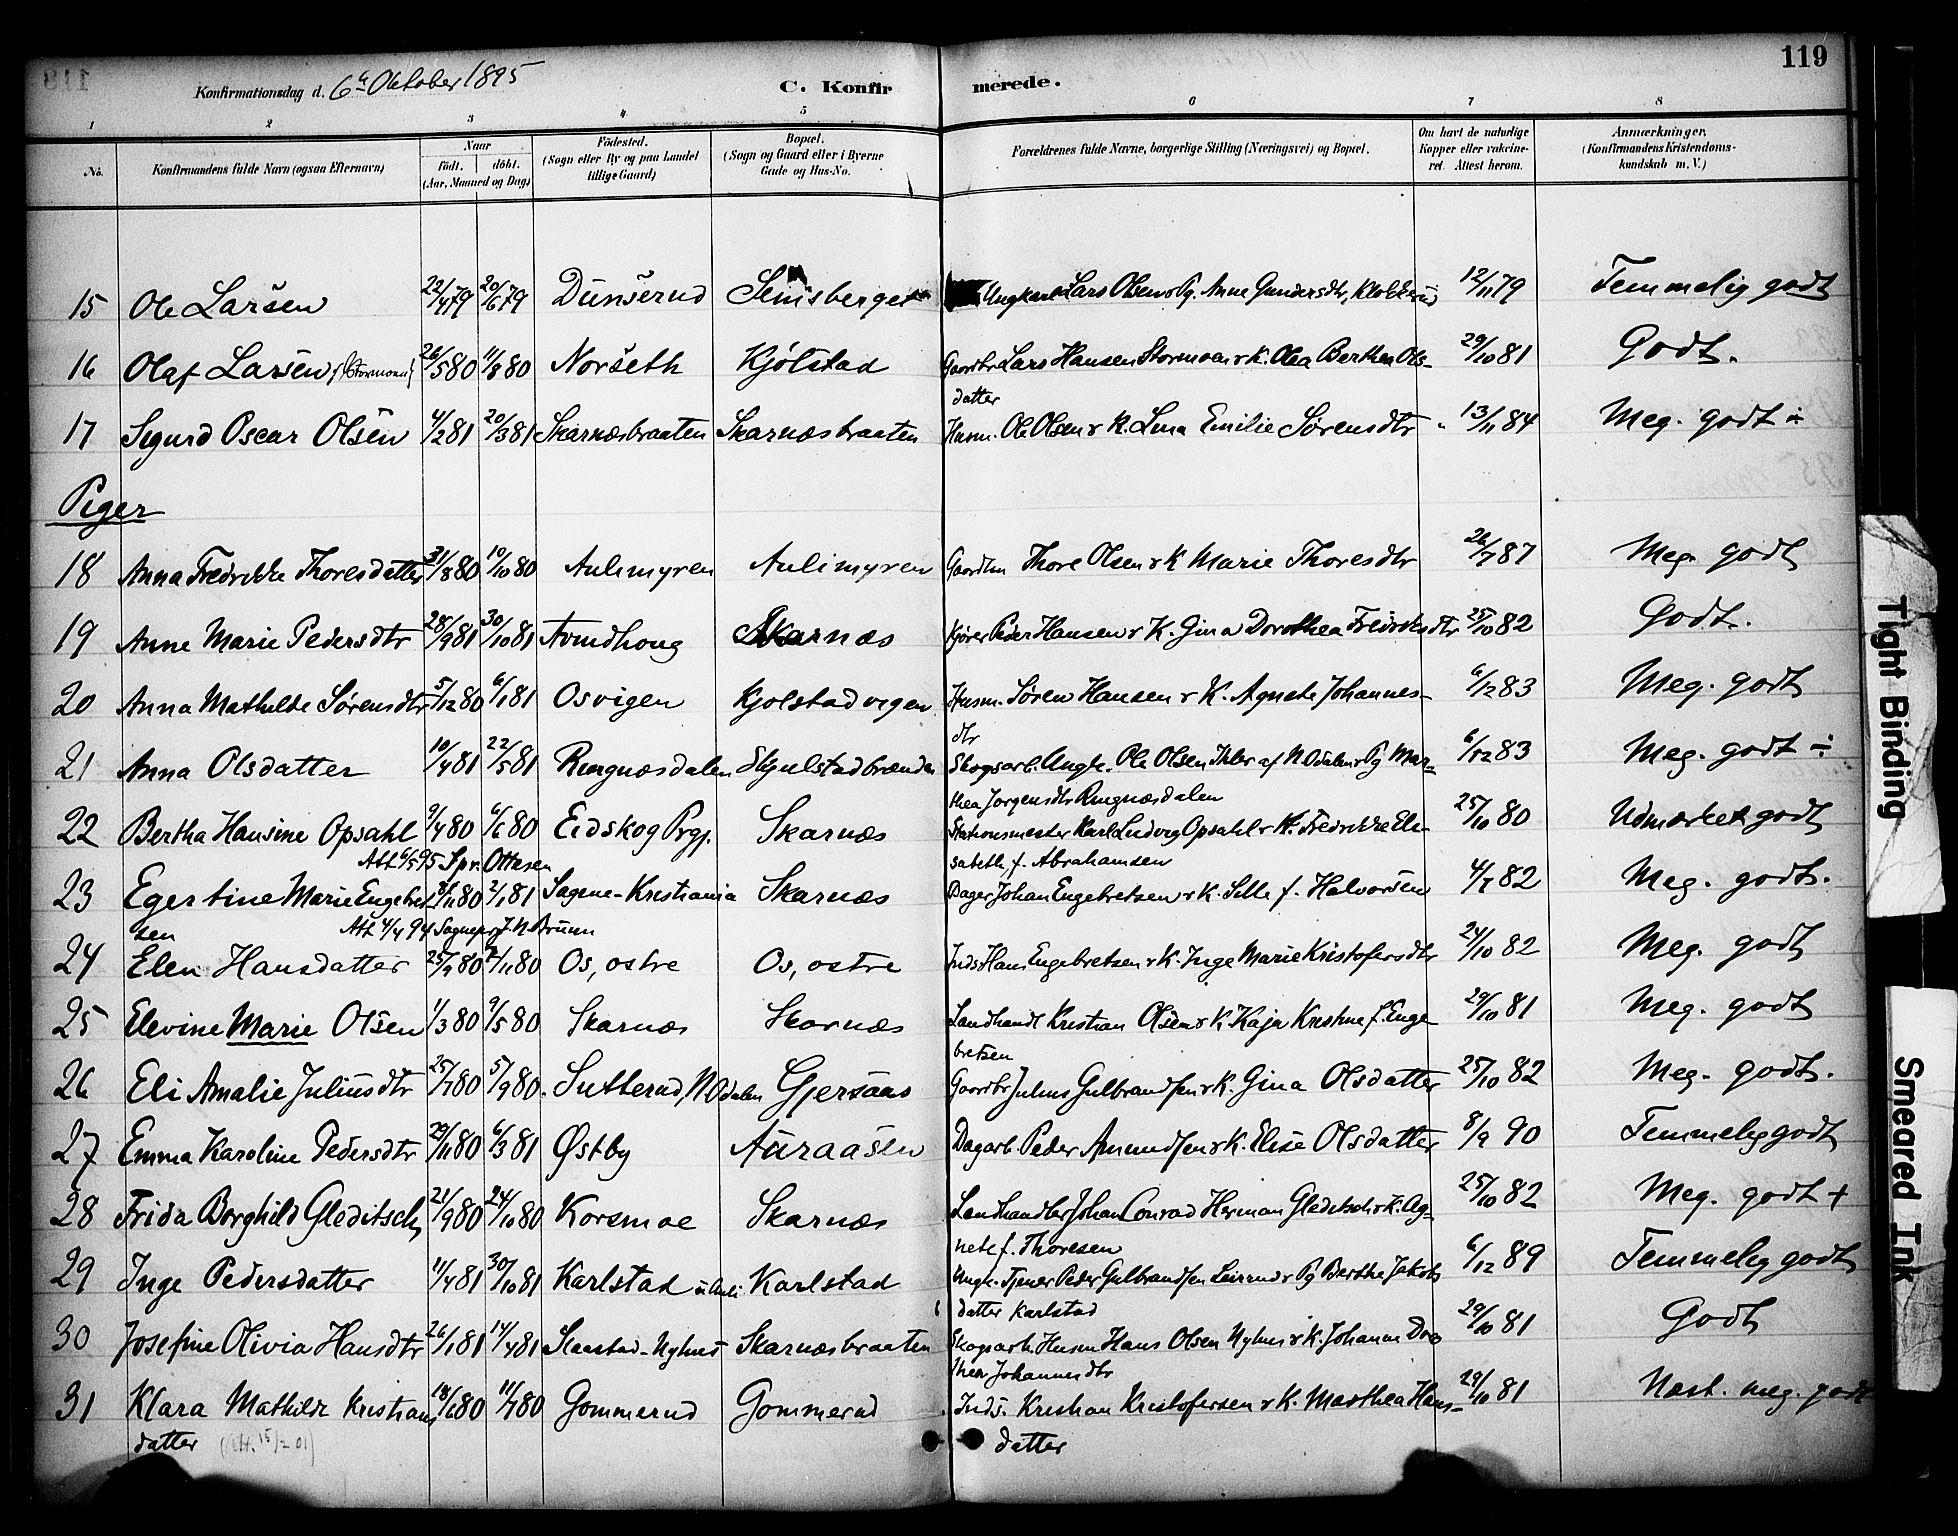 119
Konfirmationsdag d. 6te Oktober 1895 C. Konfirmerede.
1 2 3 4 5 6 7 8
No. Konfirmandens fulde Navn (ogsaa Efternavn) Naar født. døbt. (Aar, Maaned og Dag) Fødested. (Sogn eller By og paa Landet tillige Gaard) Bopæl. (Sogn og Gaard eller i Byerne Gade og Hus-No.) Forældrenes fulde Navne, borgerlige Stilling (Næringsvei) og Bopæl. Om havt de naturlige Kopper eller vakcineret. Attest herom. Anmærkninger. (Konfirmandens Kristendomskundskab m. V.)
15 Ole Larsen 22/4 79 20/6 79 Dunserud Senisberget Ungkarl Lars Olsen & Pg. Anne Gundersdtr, Klokkerud 12/11 79 Temmelig godt
16 Olaf Larsen (Stormoen) 26/5 80 11/8 80 Norseth Kjølstad Gaardbr Lars Hansen Stormoen & K. Olea Berthea Ols- 29/10 81 Godt.
datter
17 Sigurd Oscar Olsen 4/2 81 20/3 81 Skarnæsbraaten Skarnæsbraaten Husm. Ole Olsen & K. Lina Emilie Sørensdtr 13/11 84 Meg. godt ÷
Piger
18 Anna Fredrikke Thoresdatter 31/8 80 10/10 80 Aulimyren Aulimyren Gaardm Thore Olsen & K Marie Thoresdtr 26/7 87 Meg. godt
19 Anne Marie Pedersdtr 28/9 81 30/10 81 Arndhoug Skarnæs Kjører Peder Hansen & K. Gina Dorothea Fredriksdtr 25/10 82 Godt.
20 Anna Mathilde Sørensdtr 5/12 80 6/1 81 Osvigen Kjølstadvigen Husm. Søren Hansen & K. Agnete Johannes- 6/12 83 Meg. godt
dtr
21 Anna Olsdatter 10/4 81 22/5 81 Ringnæsdalen Skjulstadbrænden Skogsarb. Ungk. Ole Olsen Ihler af N Odalen & Pg Mar- 6/12 83 Meg. godt ÷
thea Jørgensdtr Ringnæsdalen
22 Bertha Hansine Opsahl 9/4 80 6/6 80 Eidskog Prgj. Skarnæs Stationsmester Karl Ludvig Opsahl & K. Fredrikke Eli- 25/10 80 Udmærket godt
Att 6/5 95 Spr. Ottesen sabeth, f. Abrahamsen
23 Egertine Marie Engebret- 8/11 80 2/1 81 Sagene-Kristiania Skarnæs Dager Johan Engebretsen & K. Sille f. Halvorsen 4/7 82 Meg. godt.
sen Att 4/4 94 Sagnepr J. N. Bruun
24 Elen Hansdatter 25/9 80 7/11 80 Os, østre Os, østre Inds Hans Engebretsen & K. Inge Marie Kristofersdtr 24/10 82 Meg. godt
25 Elevine Marie Olsen 1/3 80 9/5 80 Skarnæs Skarnæs Landhandl Kristian Olsen & K Kaja Kristine f. Enge- 29/10 81 Meg. godt
bretsen
26 Eli Amalie Juliusdtr 25/7 80 5/9 80. Sutterud, N Odalen Gjersaas Gaardbr Julius Gulbrandsen & K. Gina Olsdatter 25/10 82 Meg. godt.
27 Emma Karoline Pedersdtr 29/11 80 6/3 81 Østby Auraasen Dagarb. Peder Amundsen & K. Elise Olsdatter 8/9 90 Temmelig godt
28 Frida Borghild Gleditsch 21/9 80 24/10 80 Korsmoe Skarnæs Landhandler Johan Conrad Herman Gleditsch & K. Ag- 25/10 82 Meg. godt +
nete f. Thoresen
29 Inge Pedersdatter 11/4 81 30/10 81 Karlstad u Auli Karlstad Ungk. Tjener Peder Gulbrandsen Leirud & Pg Berthe Jakobs 6/12 89 Temmelig godt
datter Karlstad
30 Josefine Olivia Hansdtr 26/1 81 14/4 81 Slaastad-Nyhus Skarnæsbraaten Skogsarb. Husm Hans Olsen Nyhus & K. Johanne Doro 29/10 81 Godt
thea Johannesdtr
31 Klara Mathilde Kristians 18/6 80 11/7 80 Gommerud Gommerud Inds. Kristian Kristofersen & K. Marthea Hans- 29/10 81 Næst. meg. godt
datter (Att. 15/2 01) datter
Tight Binding
Smeared Ink